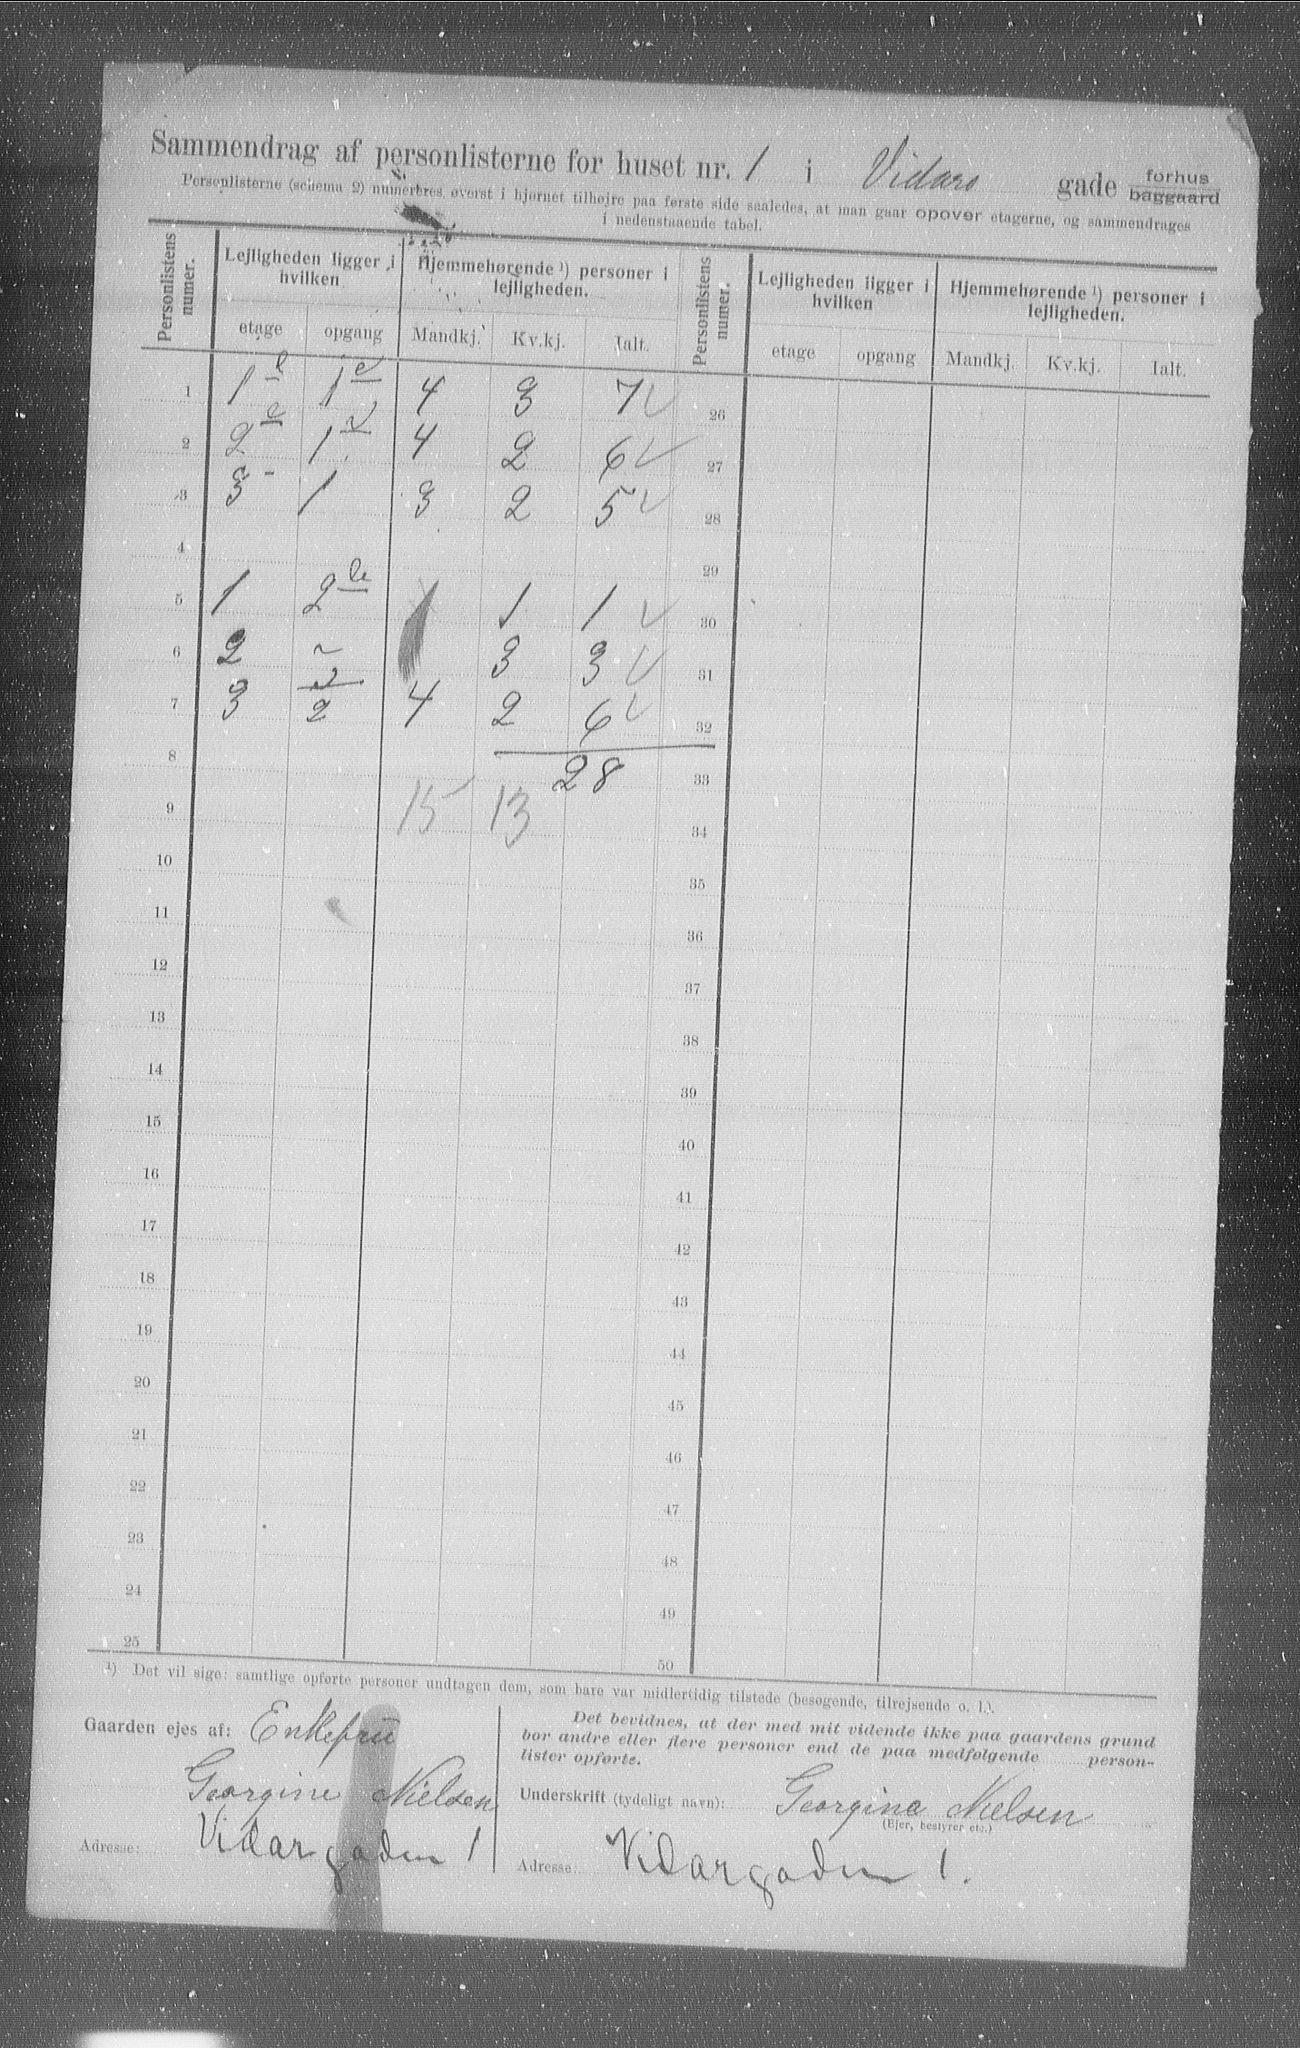 Sammendrag af personlisterne for huset nr. 1 i Vidars gade forhus baggaard
Personlisterne (schema 2) numereres øverst i hjørnet tilhøjre paa første side saaledes, at man gaar opover etagerne, og sammendrages
i nedenstaaende tabel.
Personlistens numer. Lejligheden ligger i hvilken Hjemmehørende ¹) personer i lejligheden. Personlistens numer. Lejligheden ligger i hvilken Hjemmehørende ¹) personer i lejligheden.
etage opgang Mandkj. Kv.kj. Ialt. etage opgang Mandkj. Kv.kj. Ialt.
1 1e 1e 4 3 7 ✓ 26
2 2e 1e 4 2 6 ✓ 27
3 3 - 1 3 2 5 ✓ 28
4 29
5 1 2de 1 1 ✓ 30
6 2 ~ 3 3 ✓ 31
7 3 2 4 2 6 ✓ 32
8 28 33
9 15 13 34
10 35
11 36
12 37
13 38
14 39
15 40
16 41
17 42
18 43
19 44
20 45
21 46
22 47
23 48
24 49
25 50
¹) Det vil sige: samtlige opførte personer undtagen dem, som bare var midlertidig tilstede (besøgende, tilrejsende o. l.).
Gaarden ejes af: Enkefru
Georgine Nielsen
Adresse: Vidargaden 1
Det bevidnes, at der med mit vidende ikke paa gaardens grund
bor andre eller flere personer end de paa medfølgende person-
lister opførte.
Underskrift (tydeligt navn): Georgine Nielsen
(Ejer, bestyrer etc.)
Adresse: Vidargaden 1.